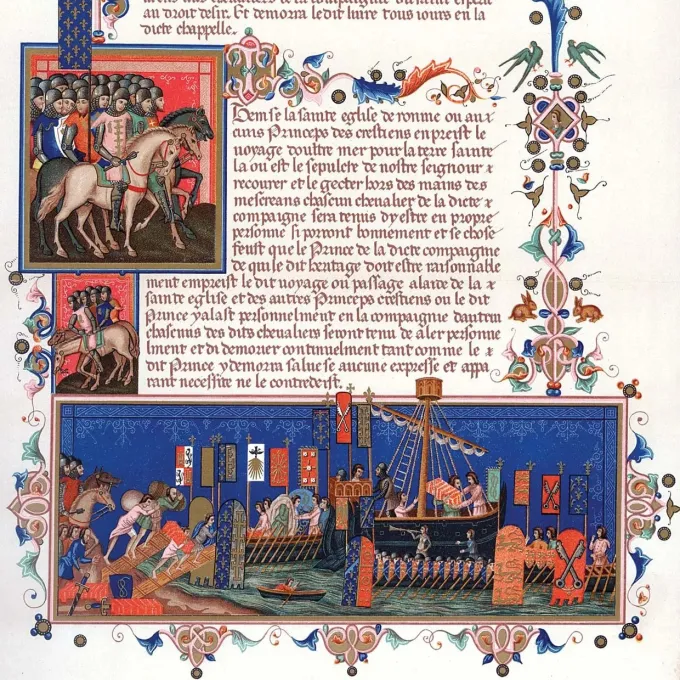 au droit desir. Et demorra le dit livre tous iours en la
dicte chappelle.
Item se la sainte eglise de romme ou aux
aus Princeps des crestiens enpreist le
uoyage doultre mer pour la terre sainte
la ou est le sepulcre de nostre seignour
recourer et le gecter hors des mains des
mescreans chascun chevalier de la dicte
compaigne sera tenus dy estre en propre
personne si porront bonnement et se chose
feust que le Prince de la dicte compaigne
de qui le dit heritage doit estre raisonnable
ment empreist le dit uoyage ou passage a laide de la
sainte eglise et des autres Princeps crestiens ou le dit
Prince y alast personnelment en la compaignie dautrui
chascuns des dits chevaliers seront tenu de aler personne
lment et di demorier continuelment tant comme le
dit Prince y demorra salue se aucune expresse et appa
rant necessite ne le contredeist.